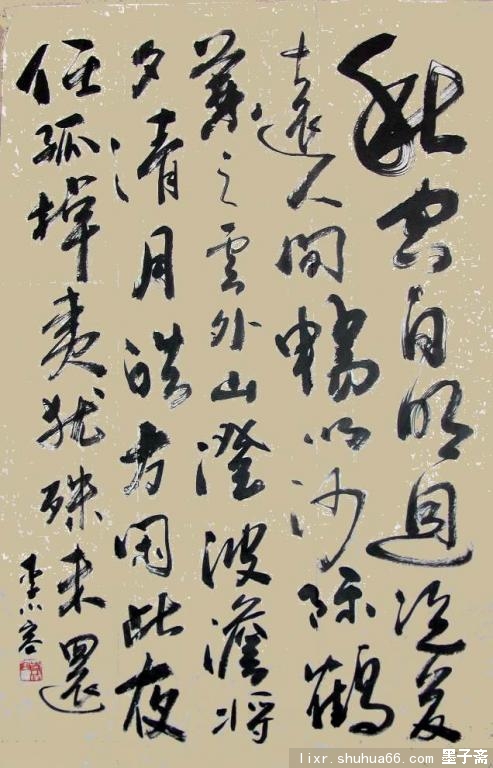 秋空自明迥况复
遠人間暢以沙际鶴
兼之雲外山澄波澹将
夕清月皓方閑此夜
任孤棹夷犹殊未還
李小容
lixr.shuhua66.com 墨子斋